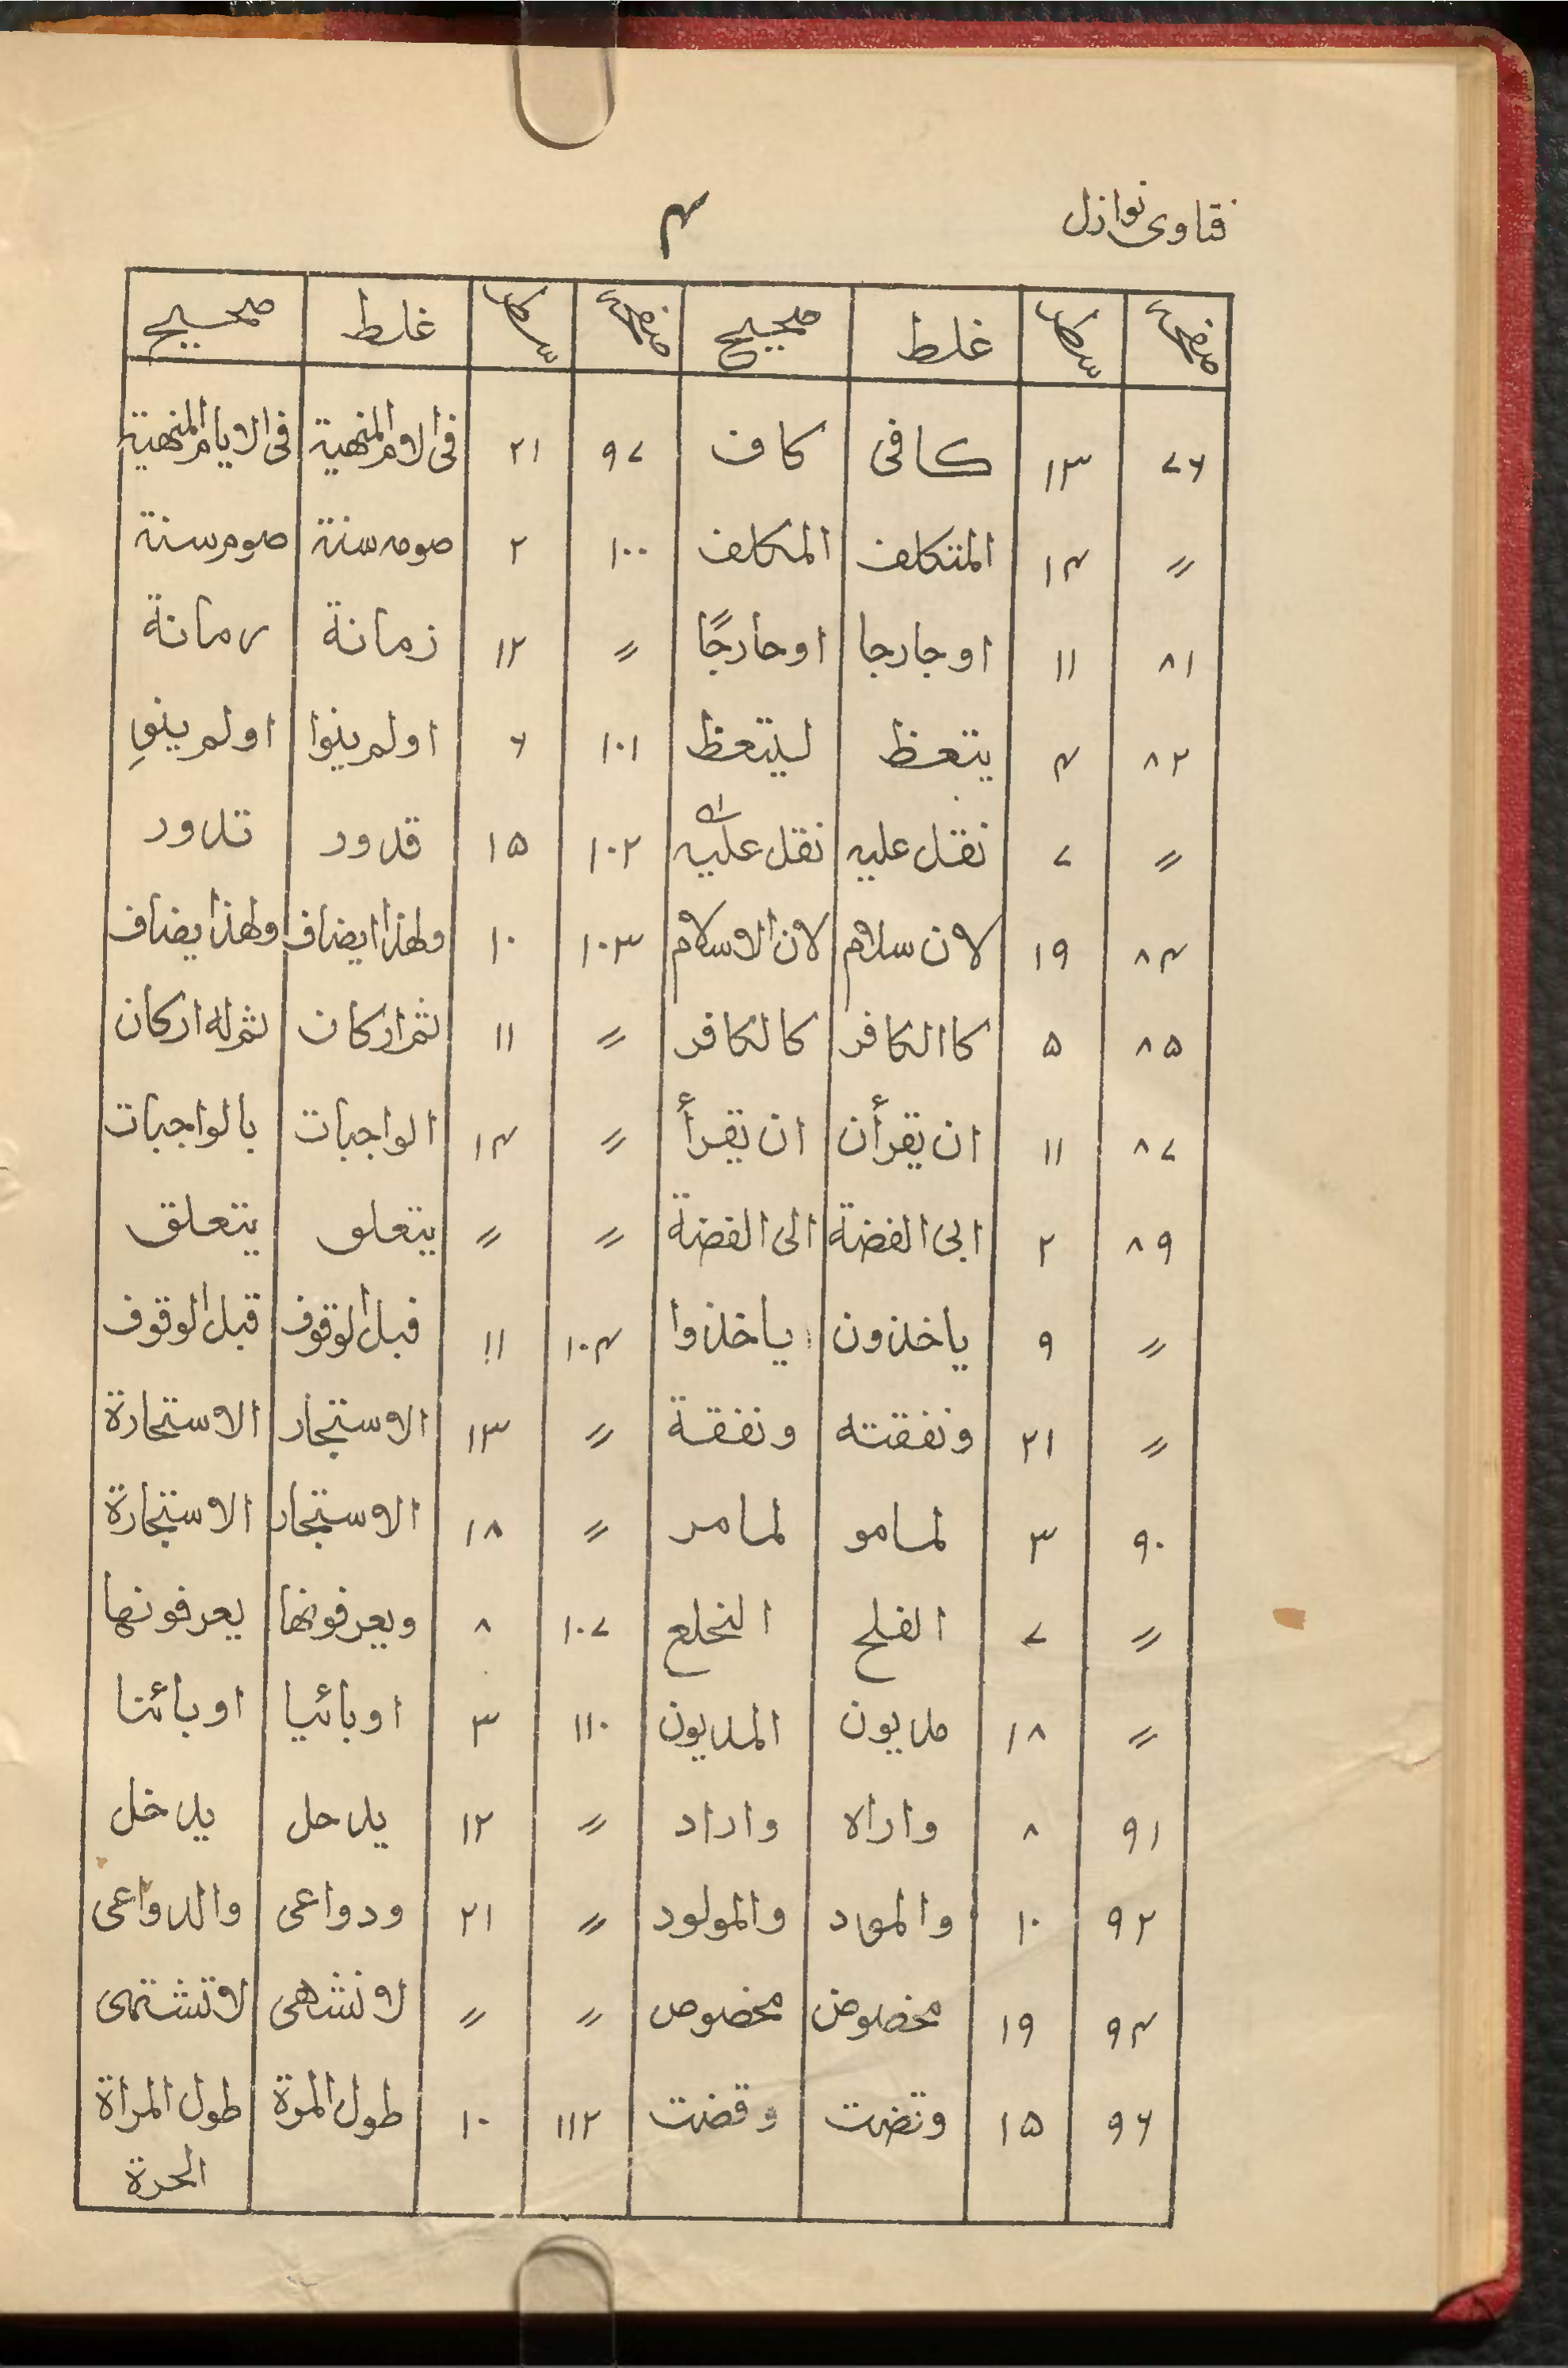 فتاوى نوازل
۴
صفحہ سطر غلط صحیح صفحہ سطر غلط صحیح
۷۶ ۱۳ كافى كاف ۹۷ ۲۱ فى الامر المنهية فى الايام المنهية
〃 ۱۴ المتكلف المكلف ۱۰۰ ۲ صومہ سنة صوم سنة
۸۱ ۱۱ اوجارجا اوحارجًا 〃 ۱۲ زمانة رمانة
۸۲ ۴ يتعظ ليتعظ ۱۰۱ ۶ اولم ينوا اولم ينوِ
〃 ۷ نقل عليه نقل عليه ۱۰۲ ۱۵ قدور تدور
۸۴ ۱۹ لان سلام لان الاسلام ۱۰۳ ۱۰ ولهذا ايضاف ولهذا يضاف
۸۵ ۵ كاالكافر كالكافر 〃 ۱۱ ثم اركان ثم له اركان
۸۷ ۱۱ ان يقرأن ان يقرأ 〃 ۱۴ الواجبات بالواجبات
۸۹ ۲ ابى الفضة الى الفضة 〃 〃 يتعلى يتعلق
〃 ۹ ياخذون ياخذوا ۱۰۴ ۱۱ فبل الوقوف قبل الوقوف
〃 ۲۱ ونفقته ونفقة 〃 ۱۳ الاستجار الاستحارة
۹۰ ۳ لمامو لمامر 〃 ۱۸ الاستجار الاستجارة
〃 ۷ الفلح النخلع ۱۰۷ ۸ ويعرفونها يعرفونها
〃 ۱۸ مديون المديون ۱۱۰ ۳ اوبائيا اوبائنا
۹۱ ۸ واراه واراد 〃 ۱۲ يدحل يدخل
۹۲ ۱۰ والمورد والمولود 〃 ۲۱ ودواعى والدواعى
۹۴ ۱۹ مخصوض مخصوص 〃 〃 لا نشهى لا تشتهى
۹۶ ۱۵ ونضت وقضت ۱۱۲ ۱۰ طول المرة طول المراة
الحرة